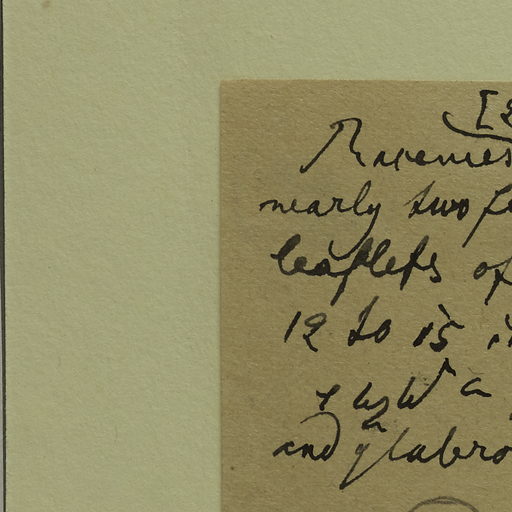 [2
Racemes
nearly two fe
leaflets of
12 to 15 in
a
and glabro